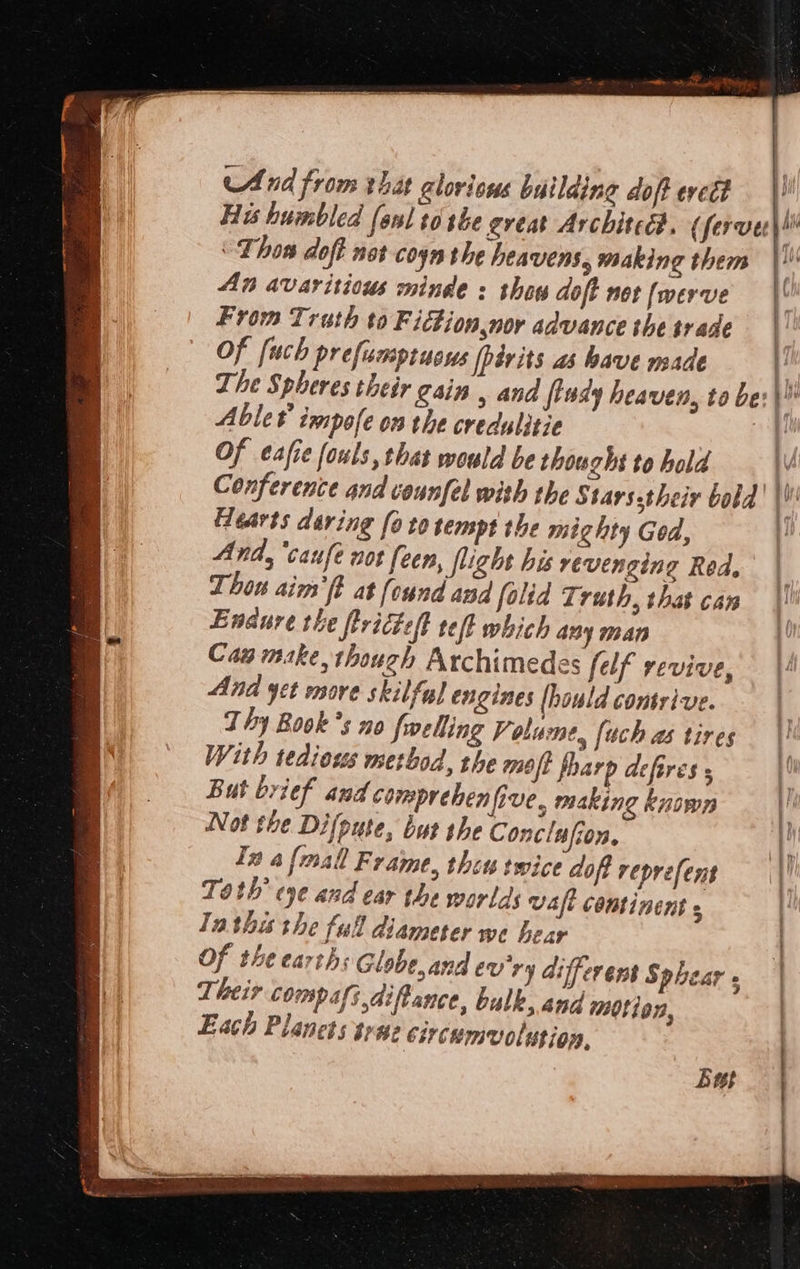 And from that glorious building doſt erect
His humbled ſoul to the great Architect. (ſerve
Thou doſt not coyn the heavens, making them
An avaritious minde : thou doſt not ſwerve
From Truth to Fiction, nor advance the trade
Of ſuch preſumptuous ſpirits as have made
The Spheres their gain , and ſtudy heaven, to be
Able t' impoſe on the credulitie
Of eaſie ſouls, that would be thought to hold
Conference and counſel with the Stars; their bold
Hearts daring ſo to tempt the mighty God,
And, 'cauſe not ſeen, ſlight his revenging Rod.
Thou aim'ſt at ſound and ſolid Truth, that can
Endure the ſtricteſt teſt which any man
Can make, though Archimedes ſelf revive,
And yet more skilful engines ſhould contrive.
Thy Book 's no ſwelling Volume, ſuch as tires
With tedious method, the moſt ſharp deſires ;
But brief and comprehenſive, making known
Not the Diſpute, but the Concluſion.
In a ſmall Frame, thou twice doſt repreſent
Toth' eye and ear the worlds vaſt continent ;
In this the full diameter we hear
Of the earths Globe, and ev'ry different Sphear ;
Their compaſs, diſtance, bulk, and motion,
Each Planets true circumvolution.
But